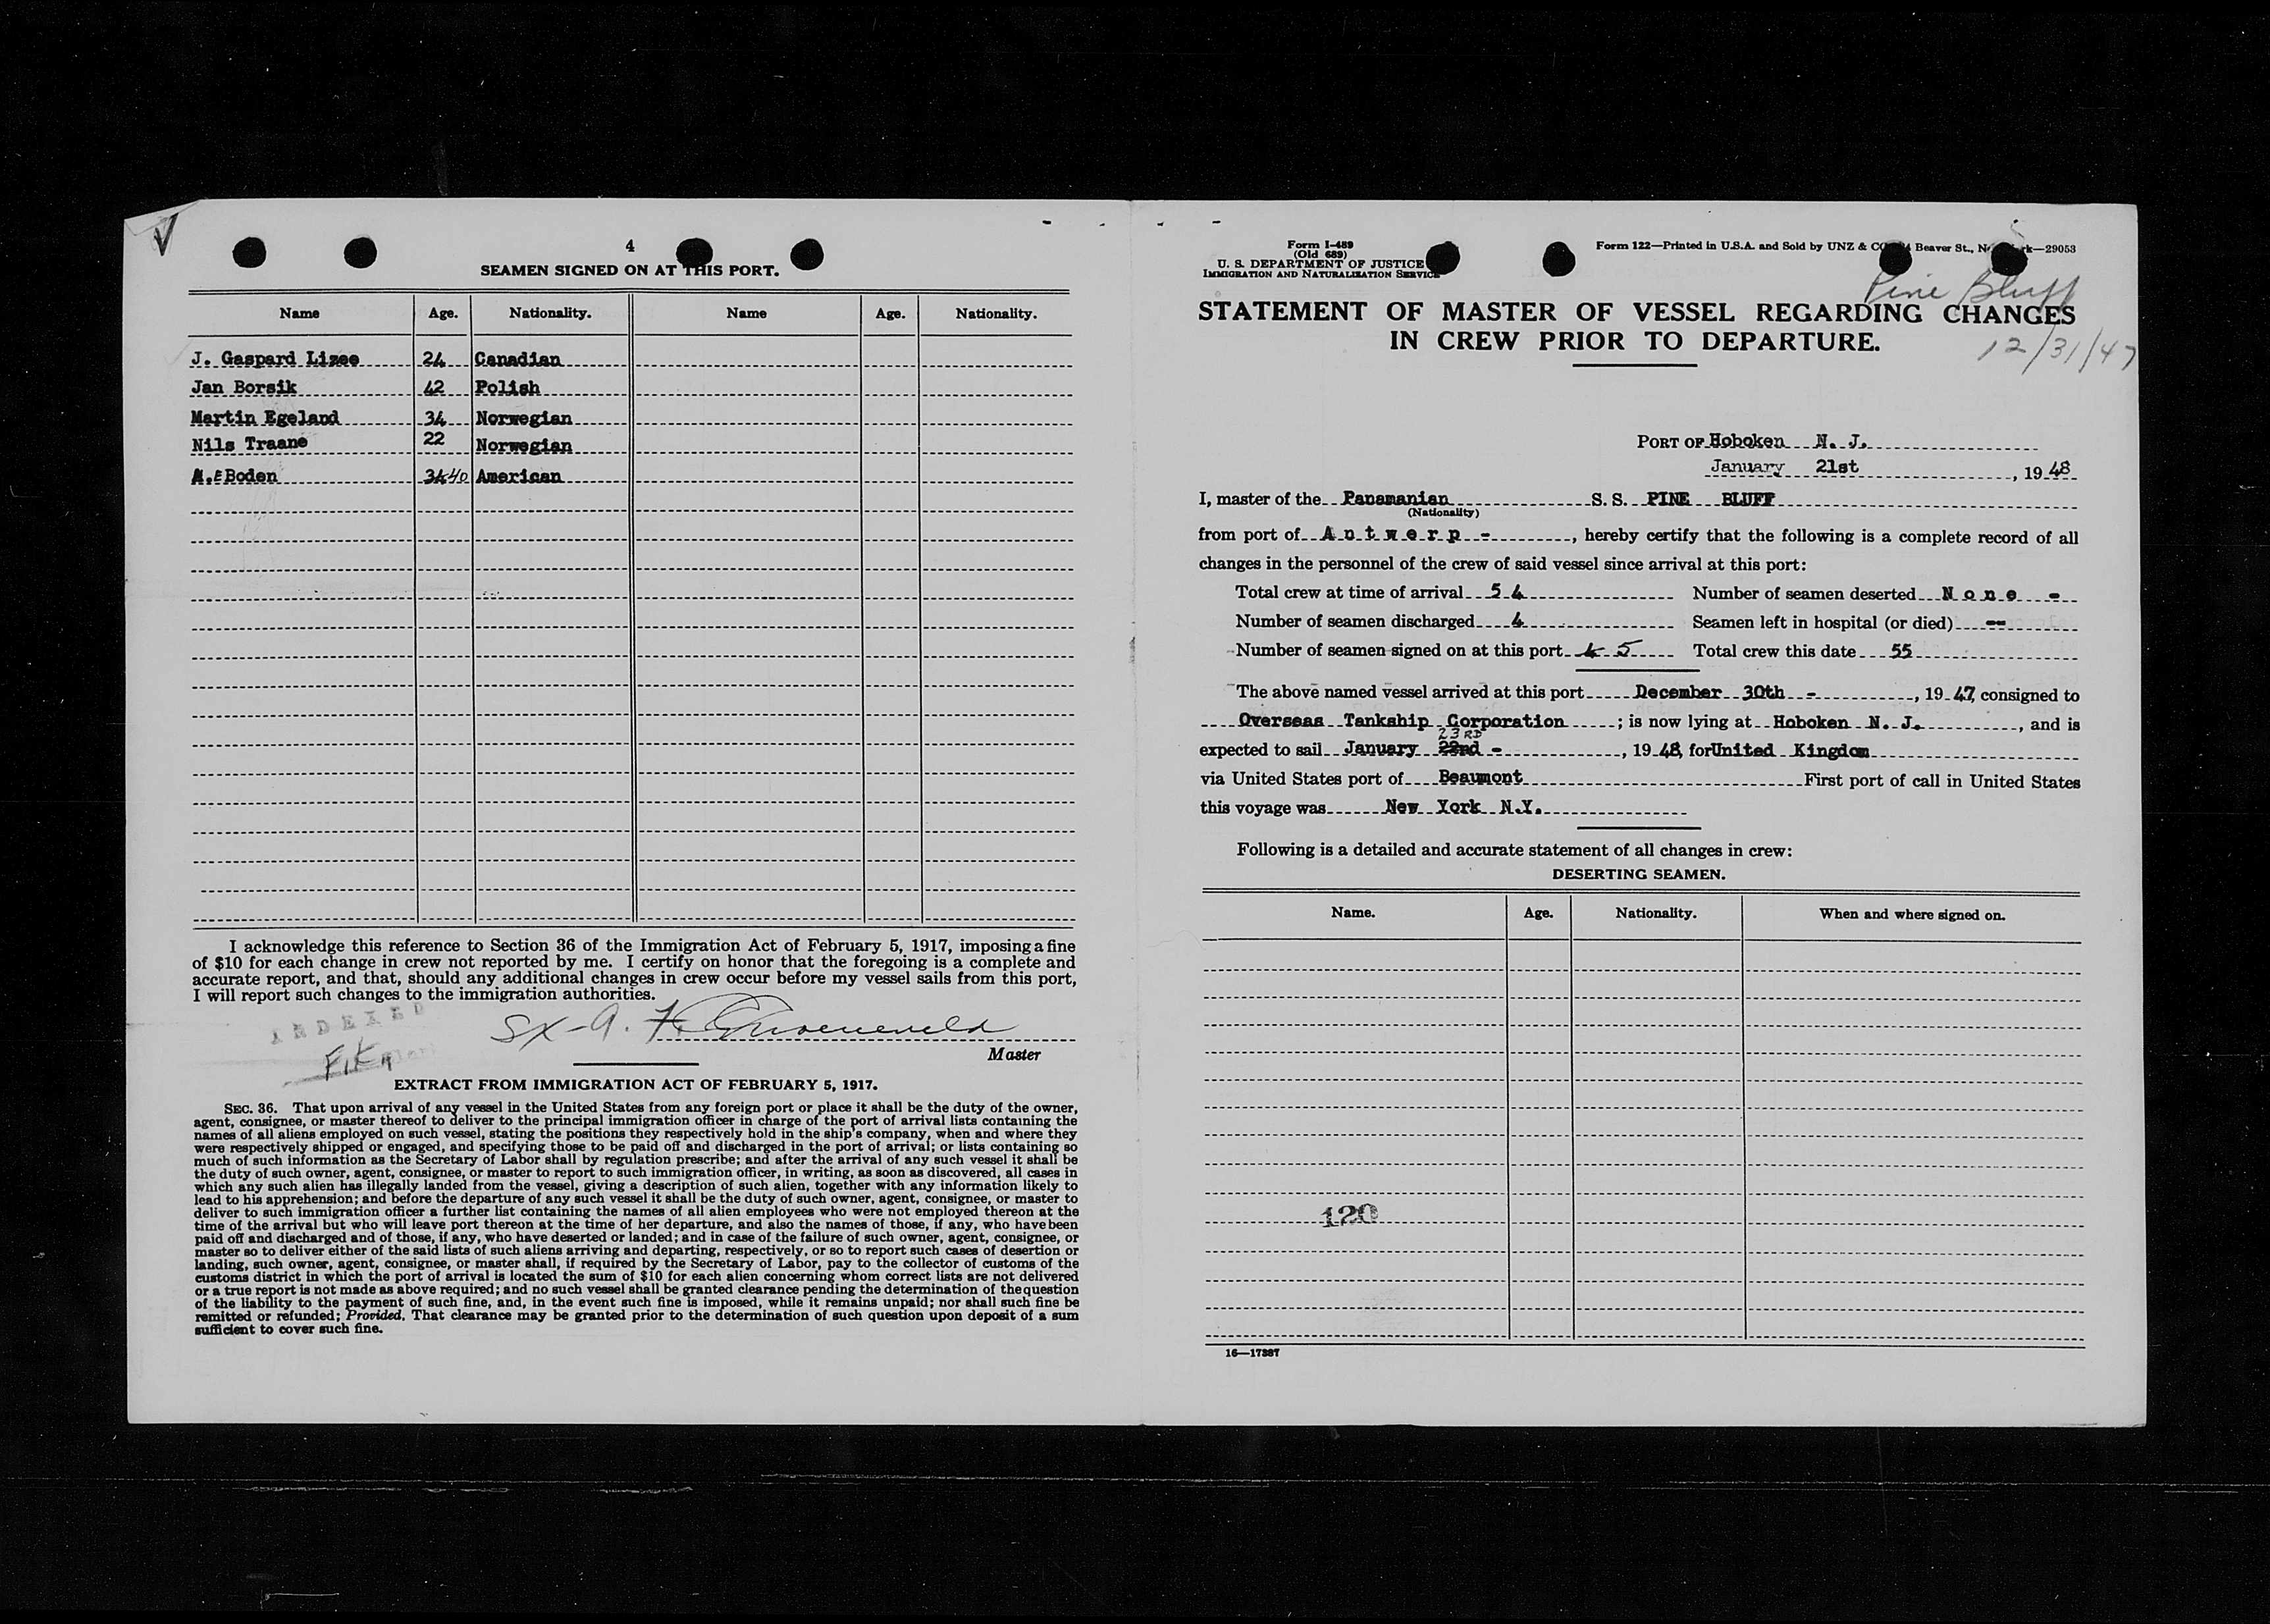 4
SEAMEN SIGNED ON AT THIS PORT.
Name Age. Nationality. Name Age. Nationality.
J. Gaspard Lizee 24 Canadian
Jan Borsik 42 Polish
Martin Egeland 34 Norwegian
Nils Traane 22 Norwegian
A.E Boden 34 40 American
I acknowledge this reference to Section 36 of the Immigration Act of February 5, 1917, imposing a fine
of $10 for each change in crew not reported by me. I certify on honor that the foregoing is a complete and
accurate report, and that, should any additional changes in crew occur before my vessel sails from this port,
I will report such changes to the immigration authorities.
INDEXED
SX-A. F. Groeneveld
Master
EXTRACT FROM IMMIGRATION ACT OF FEBRUARY 5, 1917.
SEC. 36. That upon arrival of any vessel in the United States from any foreign port or place it shall be the duty of the owner,
agent, consignee, or master thereof to deliver to the principal immigration officer in charge of the port of arrival lists containing the
names of all aliens employed on such vessel, stating the positions they respectively hold in the ship's company, when and where they
were respectively shipped or engaged, and specifying those to be paid off and discharged in the port of arrival; or lists containing so
much of such information as the Secretary of Labor shall by regulation prescribe; and after the arrival of any such vessel it shall be
the duty of such owner, agent, consignee, or master to report to such immigration officer, in writing, as soon as discovered, all cases in
which any such alien has illegally landed from the vessel, giving a description of such alien, together with any information likely to
lead to his apprehension; and before the departure of any such vessel it shall be the duty of such owner, agent, consignee, or master to
deliver to such immigration officer a further list containing the names of all alien employees who were not employed thereon at the
time of the arrival but who will leave port thereon at the time of her departure, and also the names of those, if any, who have been
paid off and discharged and of those, if any, who have deserted or landed; and in case of the failure of such owner, agent, consignee, or
master so to deliver either of the said lists of such aliens arriving and departing, respectively, or so to report such cases of desertion or
landing, such owner, agent, consignee, or master shall, if required by the Secretary of Labor, pay to the collector of customs of the
customs district in which the port of arrival is located the sum of $10 for each alien concerning whom correct lists are not delivered
or a true report is not made as above required; and no such vessel shall be granted clearance pending the determination of the question
of the liability to the payment of such fine, and, in the event such fine is imposed, while it remains unpaid; nor shall such fine be
remitted or refunded; Provided, That clearance may be granted prior to the determination of such question upon deposit of a sum
sufficient to cover such fine.
Form I-489
(Old 689)
U. S. DEPARTMENT OF JUSTICE
IMMIGRATION AND NATURALIZATION SERVICE
Form 122—Printed in U.S.A. and Sold by UNZ & CO Beaver St., N rk—29053
Pine Bluff
STATEMENT OF MASTER OF VESSEL REGARDING CHANGES
IN CREW PRIOR TO DEPARTURE.
12/31/47
PORT OF Hoboken N. J.
January 21st, 1948
I, master of the Panamanian S. S. PINE BLUFF
(Nationality)
from port of Antwerp -, hereby certify that the following is a complete record of all
changes in the personnel of the crew of said vessel since arrival at this port:
Total crew at time of arrival 54 Number of seamen deserted None -
Number of seamen discharged 4 Seamen left in hospital (or died) --
Number of seamen signed on at this port 4 5 Total crew this date 55
The above named vessel arrived at this port December 30th -, 1947, consigned to
Overseas Tankship Corporation; is now lying at Hoboken N. J., and is
23RD
expected to sail January 22nd -, 1948, for United Kingdom
via United States port of Beaumont First port of call in United States
this voyage was New York N.Y.
Following is a detailed and accurate statement of all changes in crew:
DESERTING SEAMEN.
Name. Age. Nationality. When and where signed on.
120
16—17387